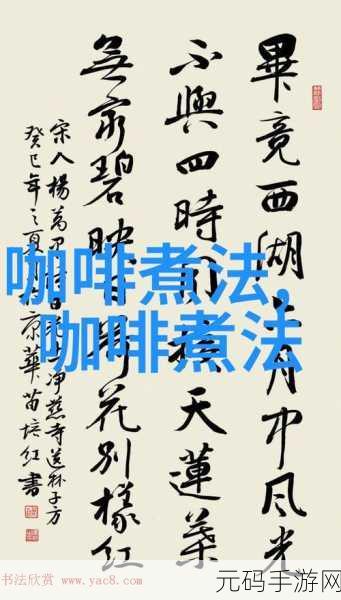 畢竟西湖六月中风光
不與四時同接天蓮葉
無窮碧映日荷花别樣红
宋人楊萬里詩净慈寺送林子方
癸巳年之夏京華苗培红書
咖啡煮法,
咖啡煮法
书法欣赏 www.yac8.com
元码手游网